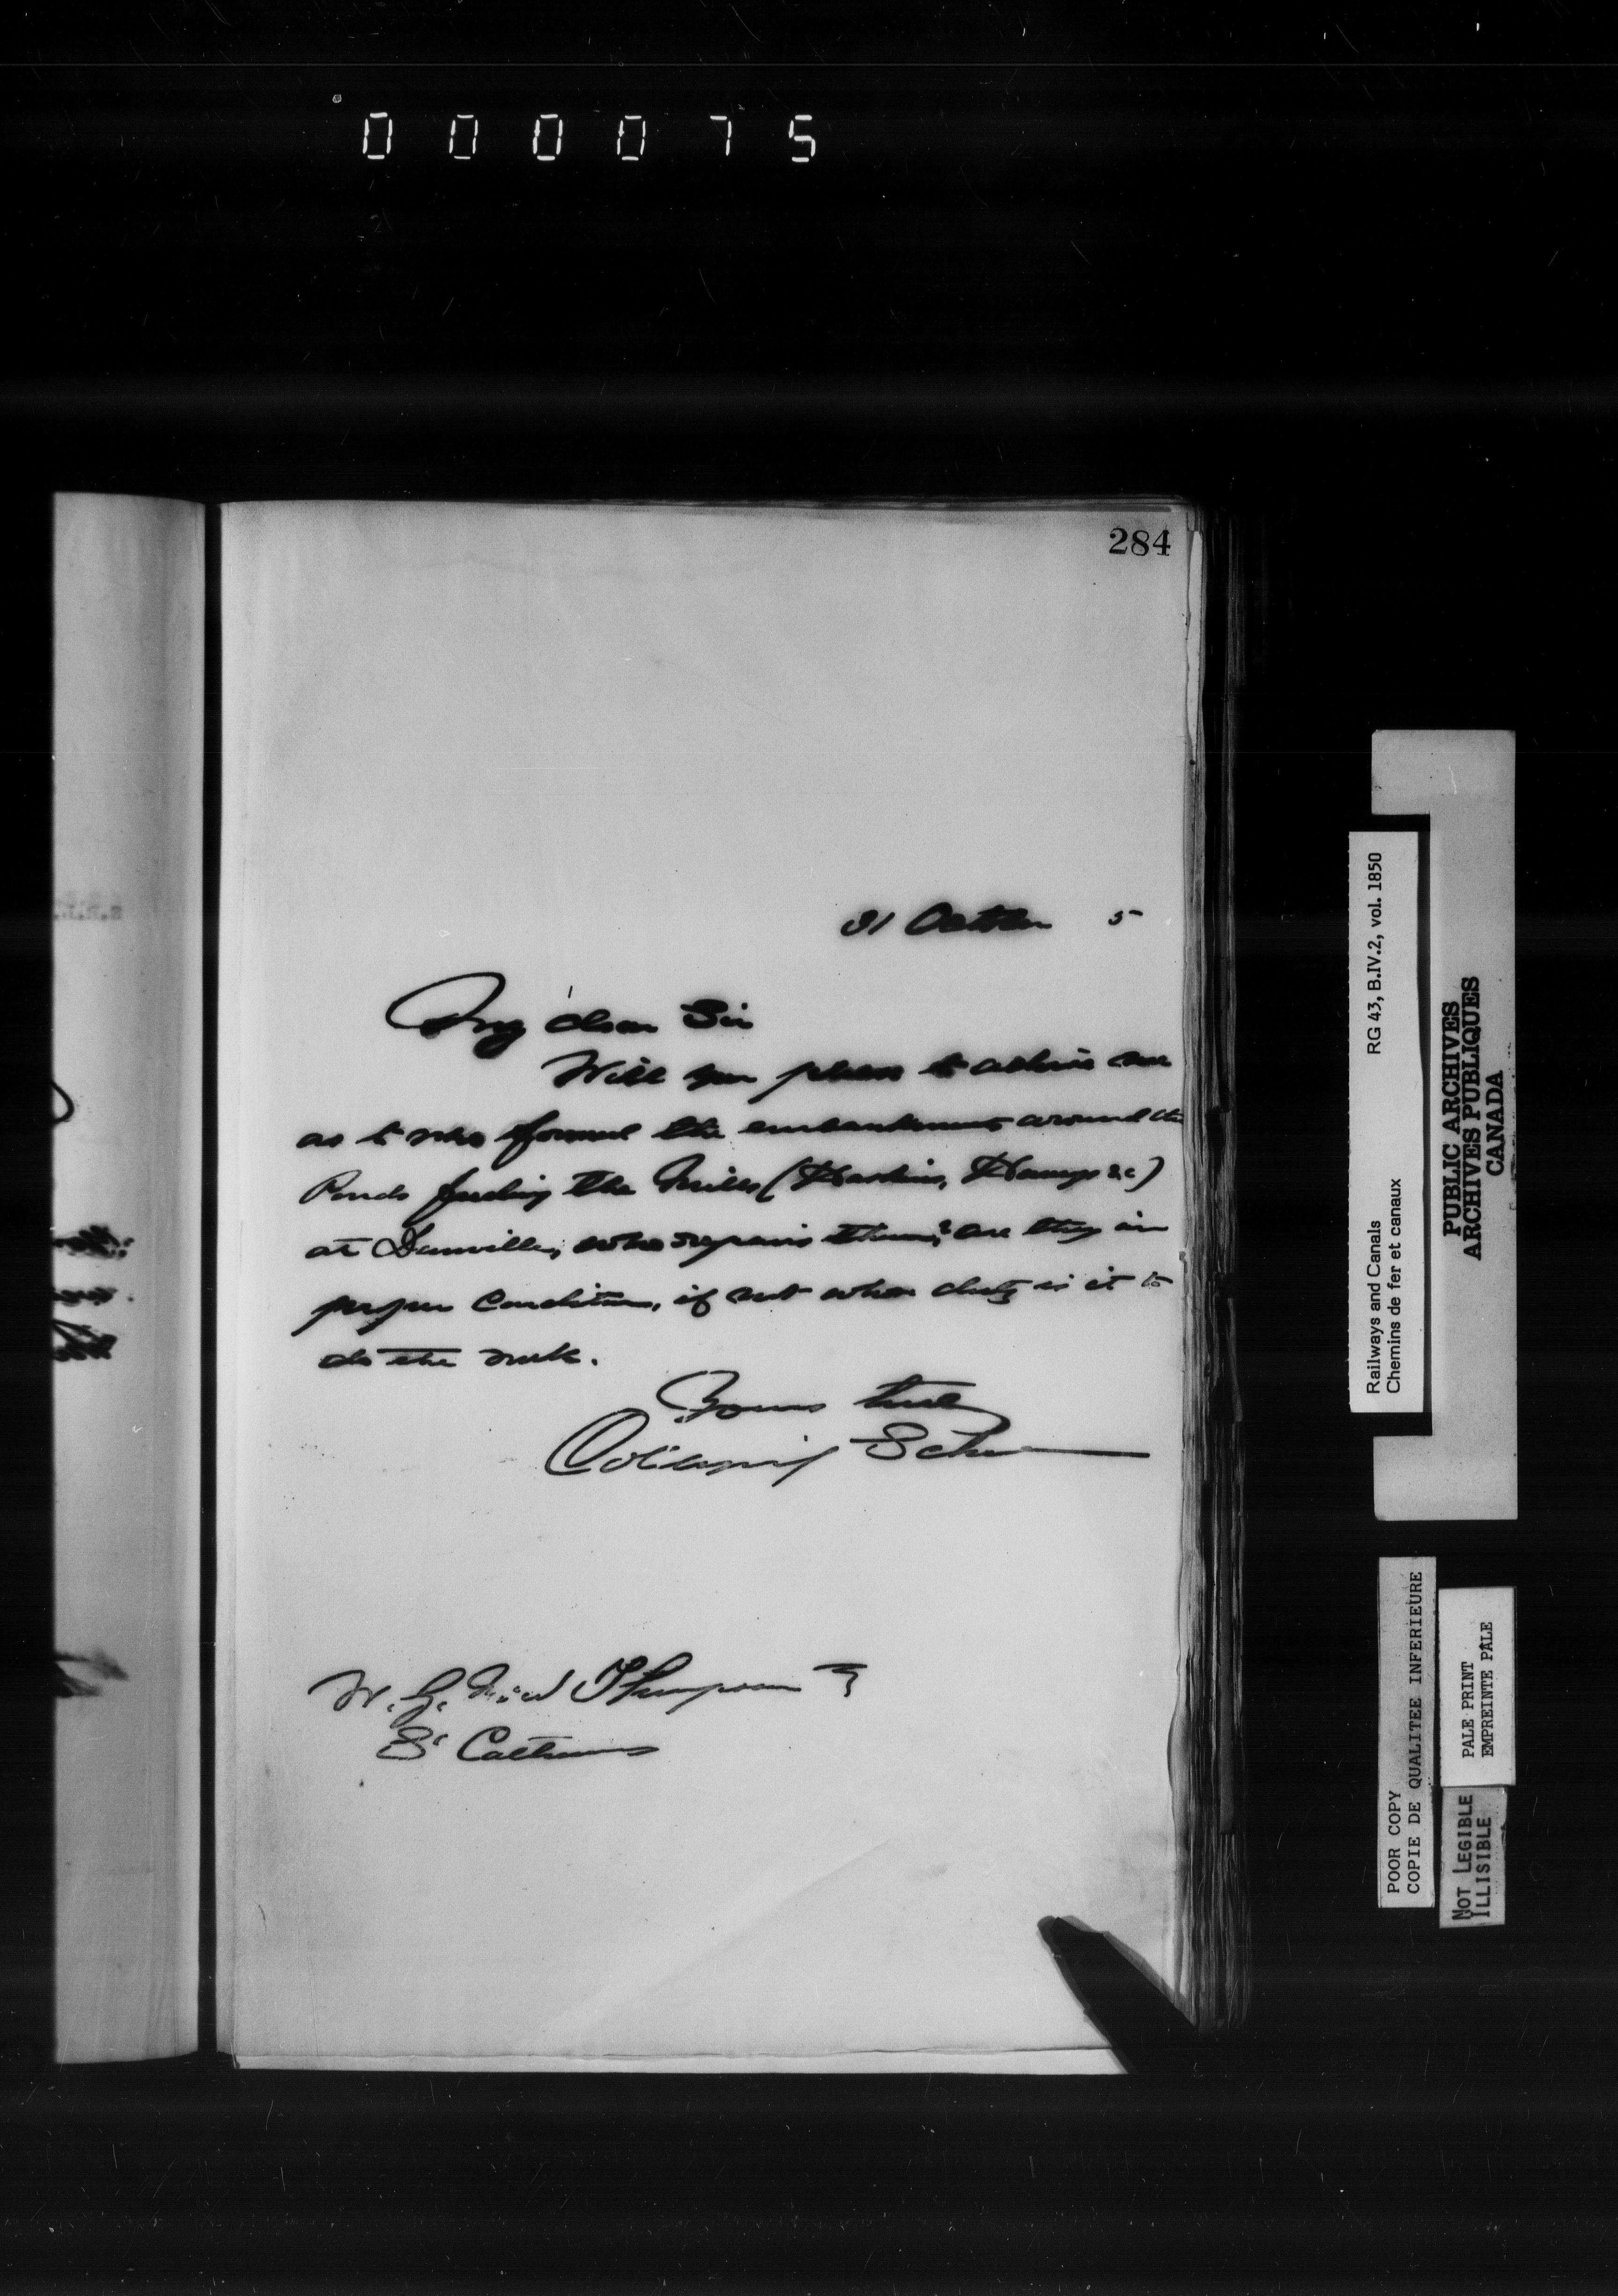 000075
284
31 October 5
My dear Sir
Will you please to advise me
as to who formed the embankments around the
Ponds feeding the Mills (Haskins, &c)
at Dunnville, who repairs them? are they in
proper Condition, if not whose duty is it to
do the work.
Yours truly
Collingwood Schreiber
W. G. Thompson
St Catherines
Railways and Canals RG 43, B.IV.2, vol. 1850
Chemins de fer et canaux
PUBLIC ARCHIVES
ARCHIVES PUBLIQUES
CANADA
POOR COPY
COPIE DE QUALITEE INFERIEURE
PALE PRINT
EMPREINTE PÂLE
NOT LEGIBLE
ILLISIBLE